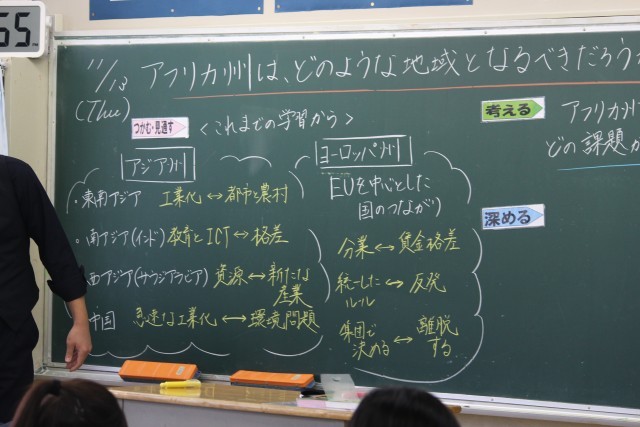 55.
11/13 アフリカ州は、どのような地域となるべきだろうか
(Thu)
つかむ・見通す
<これまでの学習から>
アジア州
・東南アジア 工業化↔都市と農村
・南アジア(インド) 教育とICT↔格差
西アジア(サウジアラビア) 資源↔新たな
産業
中国 急速な工業化↔環境問題
ヨーロッパ州
EUを中心とした
国のつながり
分業↔賃金格差
統一した
ルール↔反発
集団で
決める↔離脱
する
考える
アフリカ州
どの課題か
深める